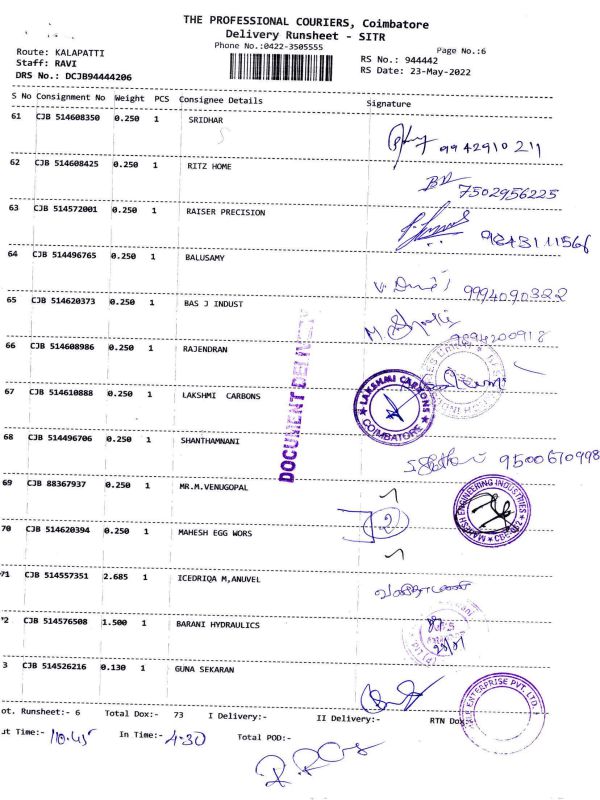 THE PROFESSIONAL COURIERS, Coimbatore
Delivery Runsheet - SITR
Phone No.:0422-3505555
Page No.:6
Route: KALAPATTI
Staff: RAVI
DRS No.: DCJB94444206
RS No.: 944442
RS Date: 23-May-2022
S No Consignment No Weight PCS Consignee Details Signature
61 CJB 514608350 0.250 1 SRIDHAR
9942910 211
62 CJB 514608425 0.250 1 RITZ HOME
7502956225
63 CJB 514572001 0.250 1 RAISER PRECISION
9843111566
64 CJB 514496765 0.250 1 BALUSAMY
9994090322
65 CJB 514620373 0.250 1 BAS J INDUST
9894200918
66 CJB 514608986 0.250 1 RAJENDRAN
67 CJB 514610888 0.250 1 LAKSHMI CARBONS
LAKSHMI CARBONS
COIMBATORE
DOCUMENT DELIVERY
68 CJB 514496706 0.250 1 SHANTHAMNANI
9500670998
69 CJB 88367937 0.250 1 MR.M.VENUGOPAL
2
MAHESH ENGINEERING INDUSTRIES
70 CJB 514620394 0.250 1 MAHESH EGG WORS
71 CJB 514557351 2.685 1 ICEDRIQA M,ANUVEL
*2 CJB 514576508 1.500 1 BARANI HYDRAULICS
3 CJB 514526216 0.130 1 GUNA SEKARAN
ENTERPRISE PVT. LTD.
ot. Runsheet:- 6 Total Dox:- 73 I Delivery:- II Delivery:- RTN Dox:-
ut Time:- 10.45 In Time:- 4.30 Total POD:-